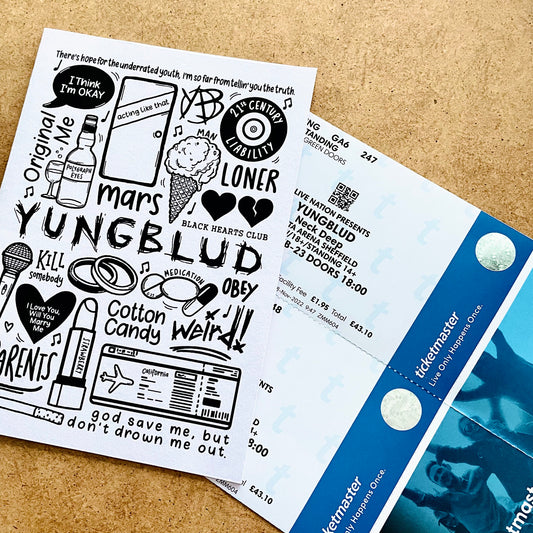 There's hope for the underrated youth, I'm so far from tellin' you the truth.
I Think
I'm OKAY
acting like that
YB
21ST CENTURY
LIABILITY
Original
Me
POLYGRAPH
EYES
MAN
LONER
mars
BLACK HEARTS CLUB
YUNGBLUD
KILL
somebody
MEDICATION
OBEY
I Love You,
Will You
Marry
Me
Cotton
Candy
Weird!
PARENTS
California
god save me, but
don't drown me out.
GA6
247
STANDING
GREEN DOORS
LIVE NATION PRESENTS
YUNGBLUD
Neck Deep
ARENA SHEFFIELD
/18+/STANDING 14+
-23 DOORS 18:00
Facility Fee £1.95 Total £43.10
-Nov-2022 9:47 ZMM604
ticketmaster
Live Only Happens Once.
NTS
18:00
£43.10
ZMM604
ticketmaster
Only Happens Once.